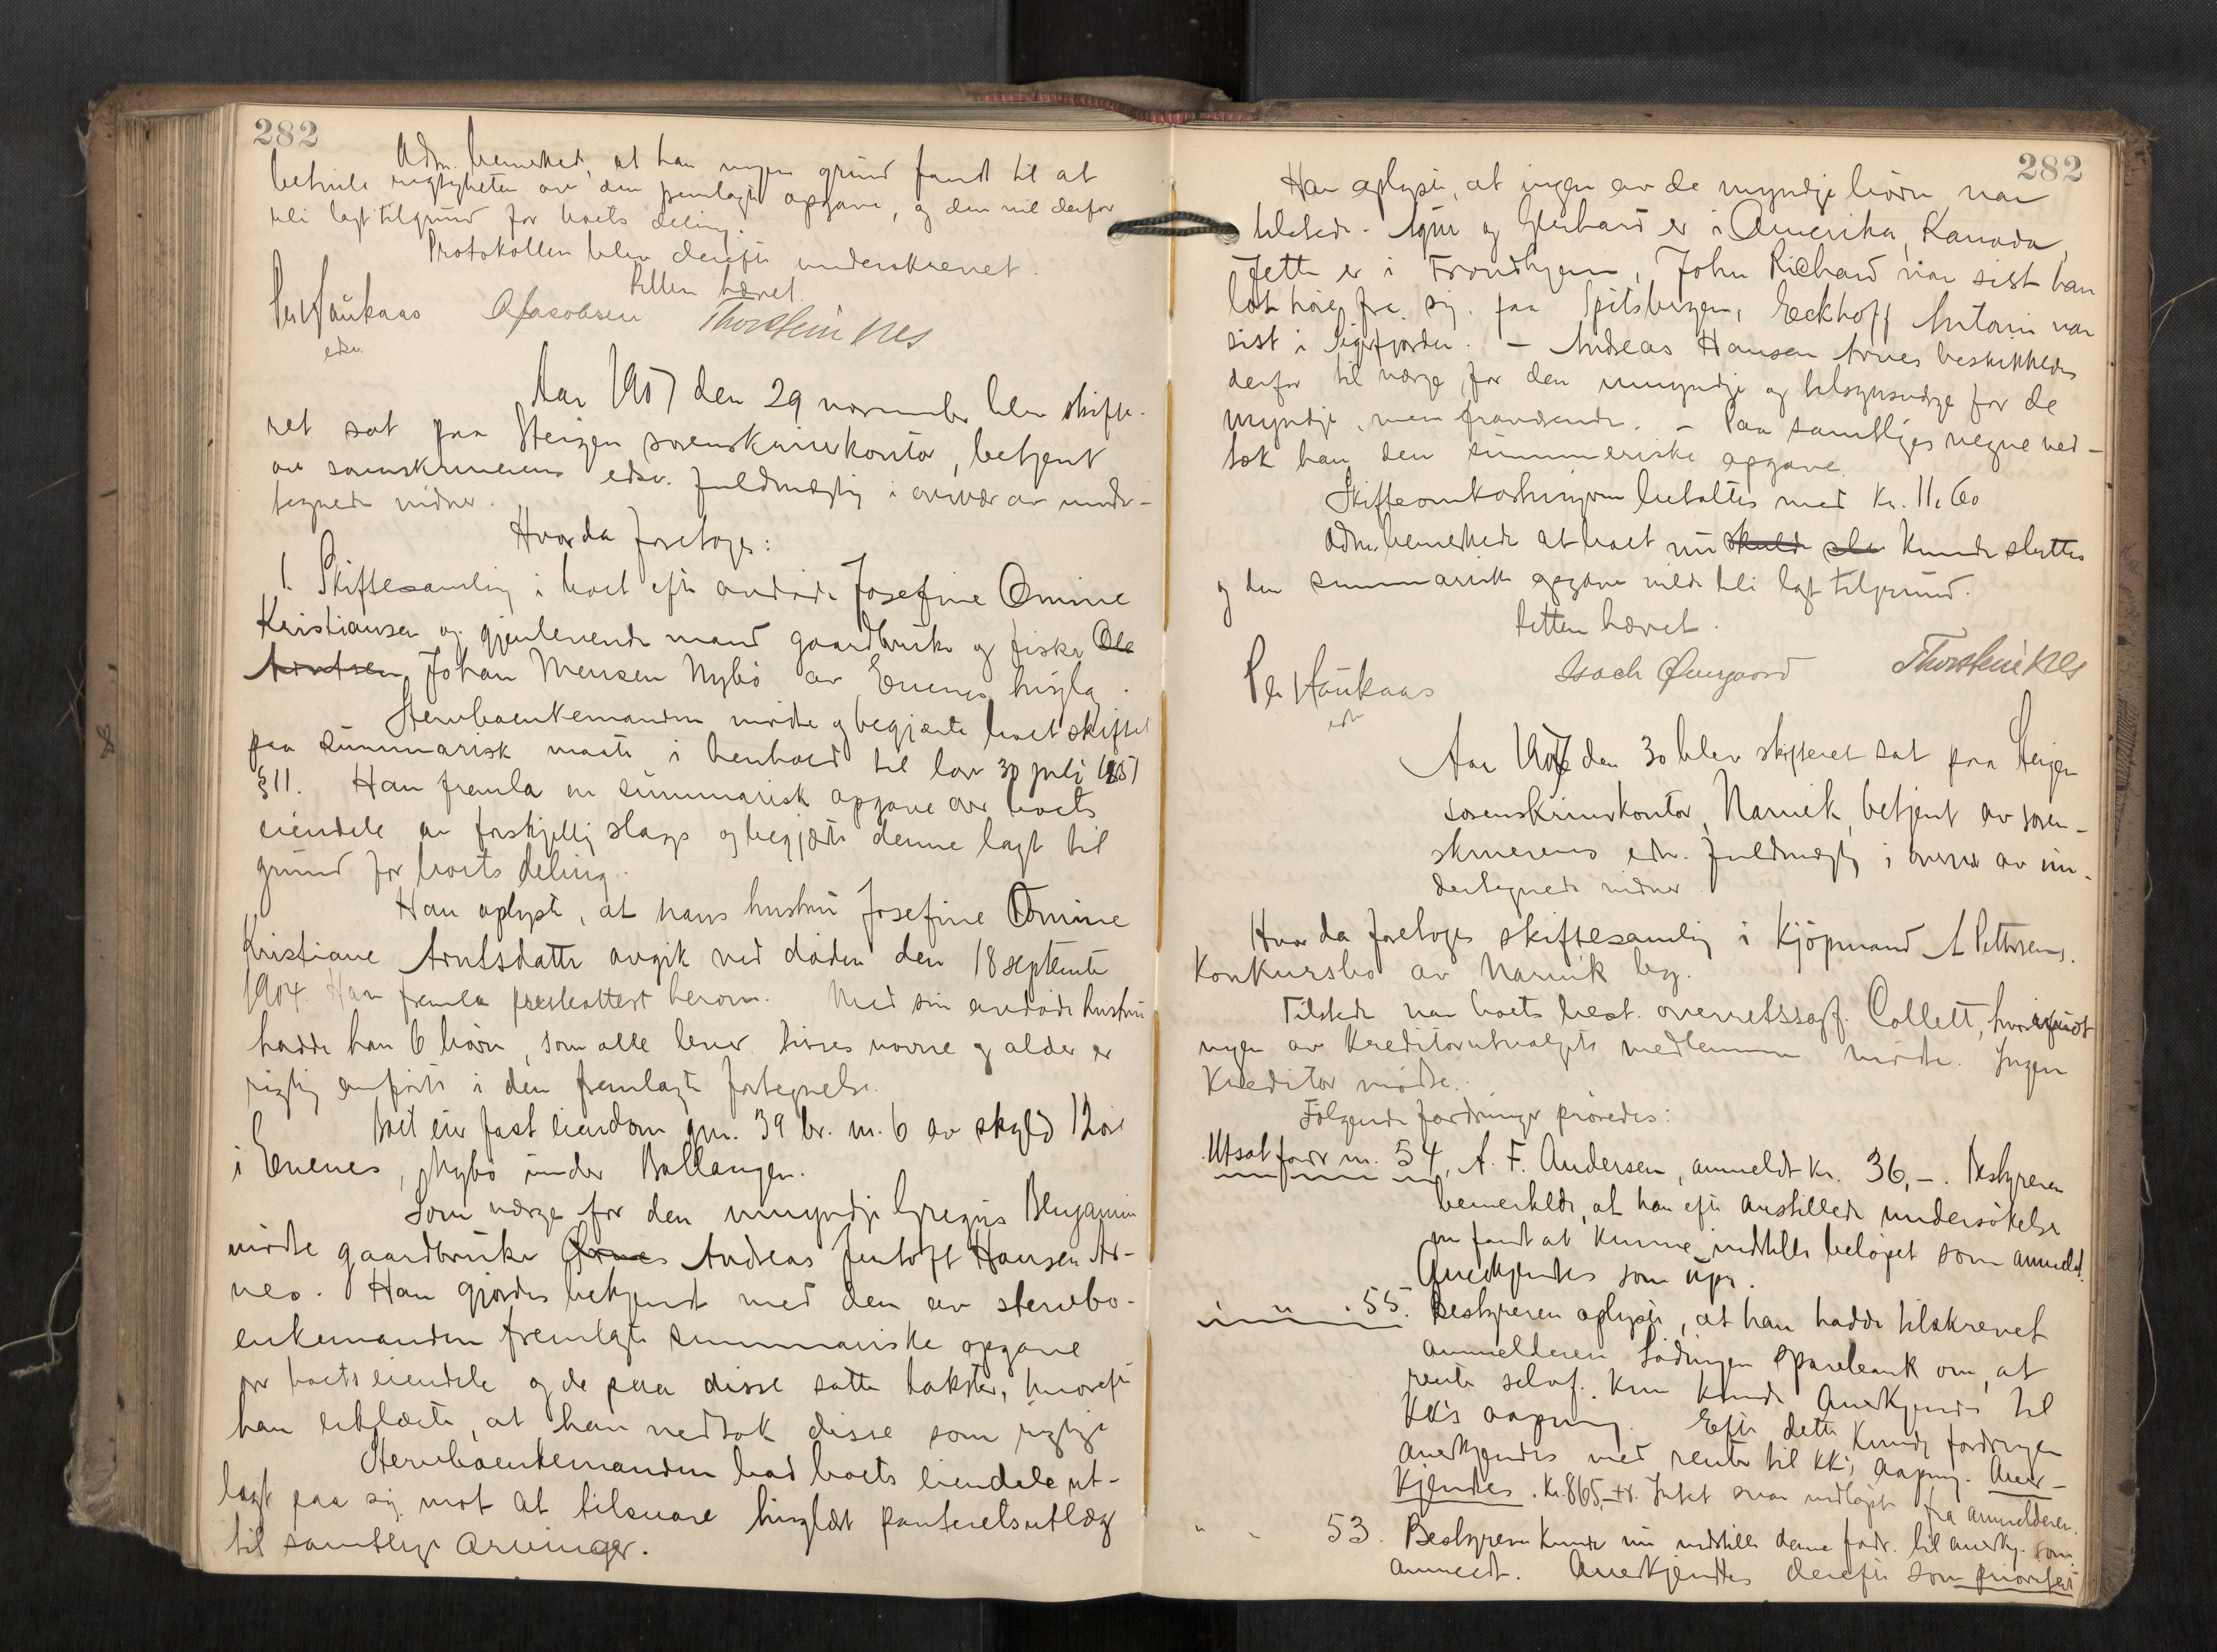 282
Adm. bemerket, at han ingen grund fandt til at
betvile rigtigheten av den fremlagte opgave, og den vil derfor
bli lagt til grund for boets deling.
Protokollen blev derefter underskrevet.
Retten hævet.
Per Haukaas O Jacobsen Thorstein Nes
edsv.
Aar 1907 den 29 november blev skifte-
ret sat paa Steigen sorenskriverkontor, betjent
av sorenskriverens edsv. fuldmægtig i overvær av under-
tegnede vidner.
Hvor da foretoges:
1. Skiftesamling i boet efter avdøde Josefine Omine
Kristiansen og gjenlevende mand gaardbruker og fisker Ole
Arntsen Johan Mensen Nybö av Evenes tinglag.
Stervboenkemanden mødte og begjærte boet skiftet
paa summarisk maate i henhold til lov 30 juli 1851
§ 11. Han fremla en summarisk opgave over boets
eiendele av forskjellig slags og begjærte denne lagt til
grund for boets deling.
Han oplyste, at hans hustru Josefine Omine
Kristiane Arntsdatter avgik ved døden den 18 september
1904. Han fremla presteattest herom. Med sin avdøde hustru
hadde han 6 børn, som alle lever. Disses navne og alder er
rigtig anført i den fremlagte fortegnelse.
Boet eier fast eiendom gnr. 39 br. nr. 6 av skyld 12 øre
i Evenes, Nybö under Ballangen.
Som værge for den umyndige Gregus Benjamin
mødte gaardbruker Arnes Andreas Jentoft Hansen Ar-
nes. Han gjordes bekjendt med den av stervbo-
enkemanden fremlagte summariske opgave
over boets eiendele og de paa disse satte takster, hvorefter
han erklærte, at han vedtok disse som rigtige
Stervboenkemanden bad boets eiendele ut-
lagt paa sig mot at tilsvare tinglæst panteretsutlæg
til samtlige arvinger.
282
Han oplyste, at ingen av de myndige børn var
tilstede. og Gerhard er i Amerika, Kanada,
Jette er i Trondhjem, John Richard var sist han
lot høre fra sig paa Spitsbergen, Eckhoff Antoni var
sist i Sigerfjorden. - Andreas Hansen Arnes beskikkedes
derfor til værge for den umyndige og tilsynsværge for de
myndige, men fraværende. - Paa samtliges vegne ved-
tok han den summariske opgave.
Skifteomkostningerne betaltes med Kr. 11,60
Adm. bemerkede at boet nu skulde slu kunde sluttes
og den summariske opgave vilde bli lagt til grund.
Retten hævet.
Per Haukaas Isach Thorstein Nes
edsv.
Aar 1907 den 30 blev skifteret sat paa Steigen
sorenskriverkontor, Narvik, betjent av soren-
skriverens edsv. fuldmægtig i overvær av un-
dertegnede vidner
Hvor da foretoges skiftesamling i kjöpmand A Pettersens
Konkursbo av Narvik by.
Tilstede var boets best. overretssagf. Collett, hvorimot
ingen av kreditorutvalgets medlemmer mødte. Ingen
Kreditor mødte.
Følgende fordringer prøvedes:
Utsat fordr nr. 54, A. F. Andersen, anmeldt kr. 36,-. Bestyreren
bemerkede, at han efter anstillede undersøkelser
nu fandt at kunne indstille beløpet som anmeldt.
Anerkjendtes som upr.
" " " 55. Bestyreren oplyste, at han hadde tilskrevet
anmelderen Lødingen sparebank om, at
renter selvf. kun kunde anerkjendes til
kk's aapning. Efter dette kunde fordringen
anerkjendes med renter til kk's aapning. Aner-
kjendtes. Kr. 865,48. Intet svar indløpet fra anmelderen.
" " 53. Bestyreren kunde nu indstille denne fordr. til anerkj. som
anmeldt. Anerkjendtes derefter som prioritert